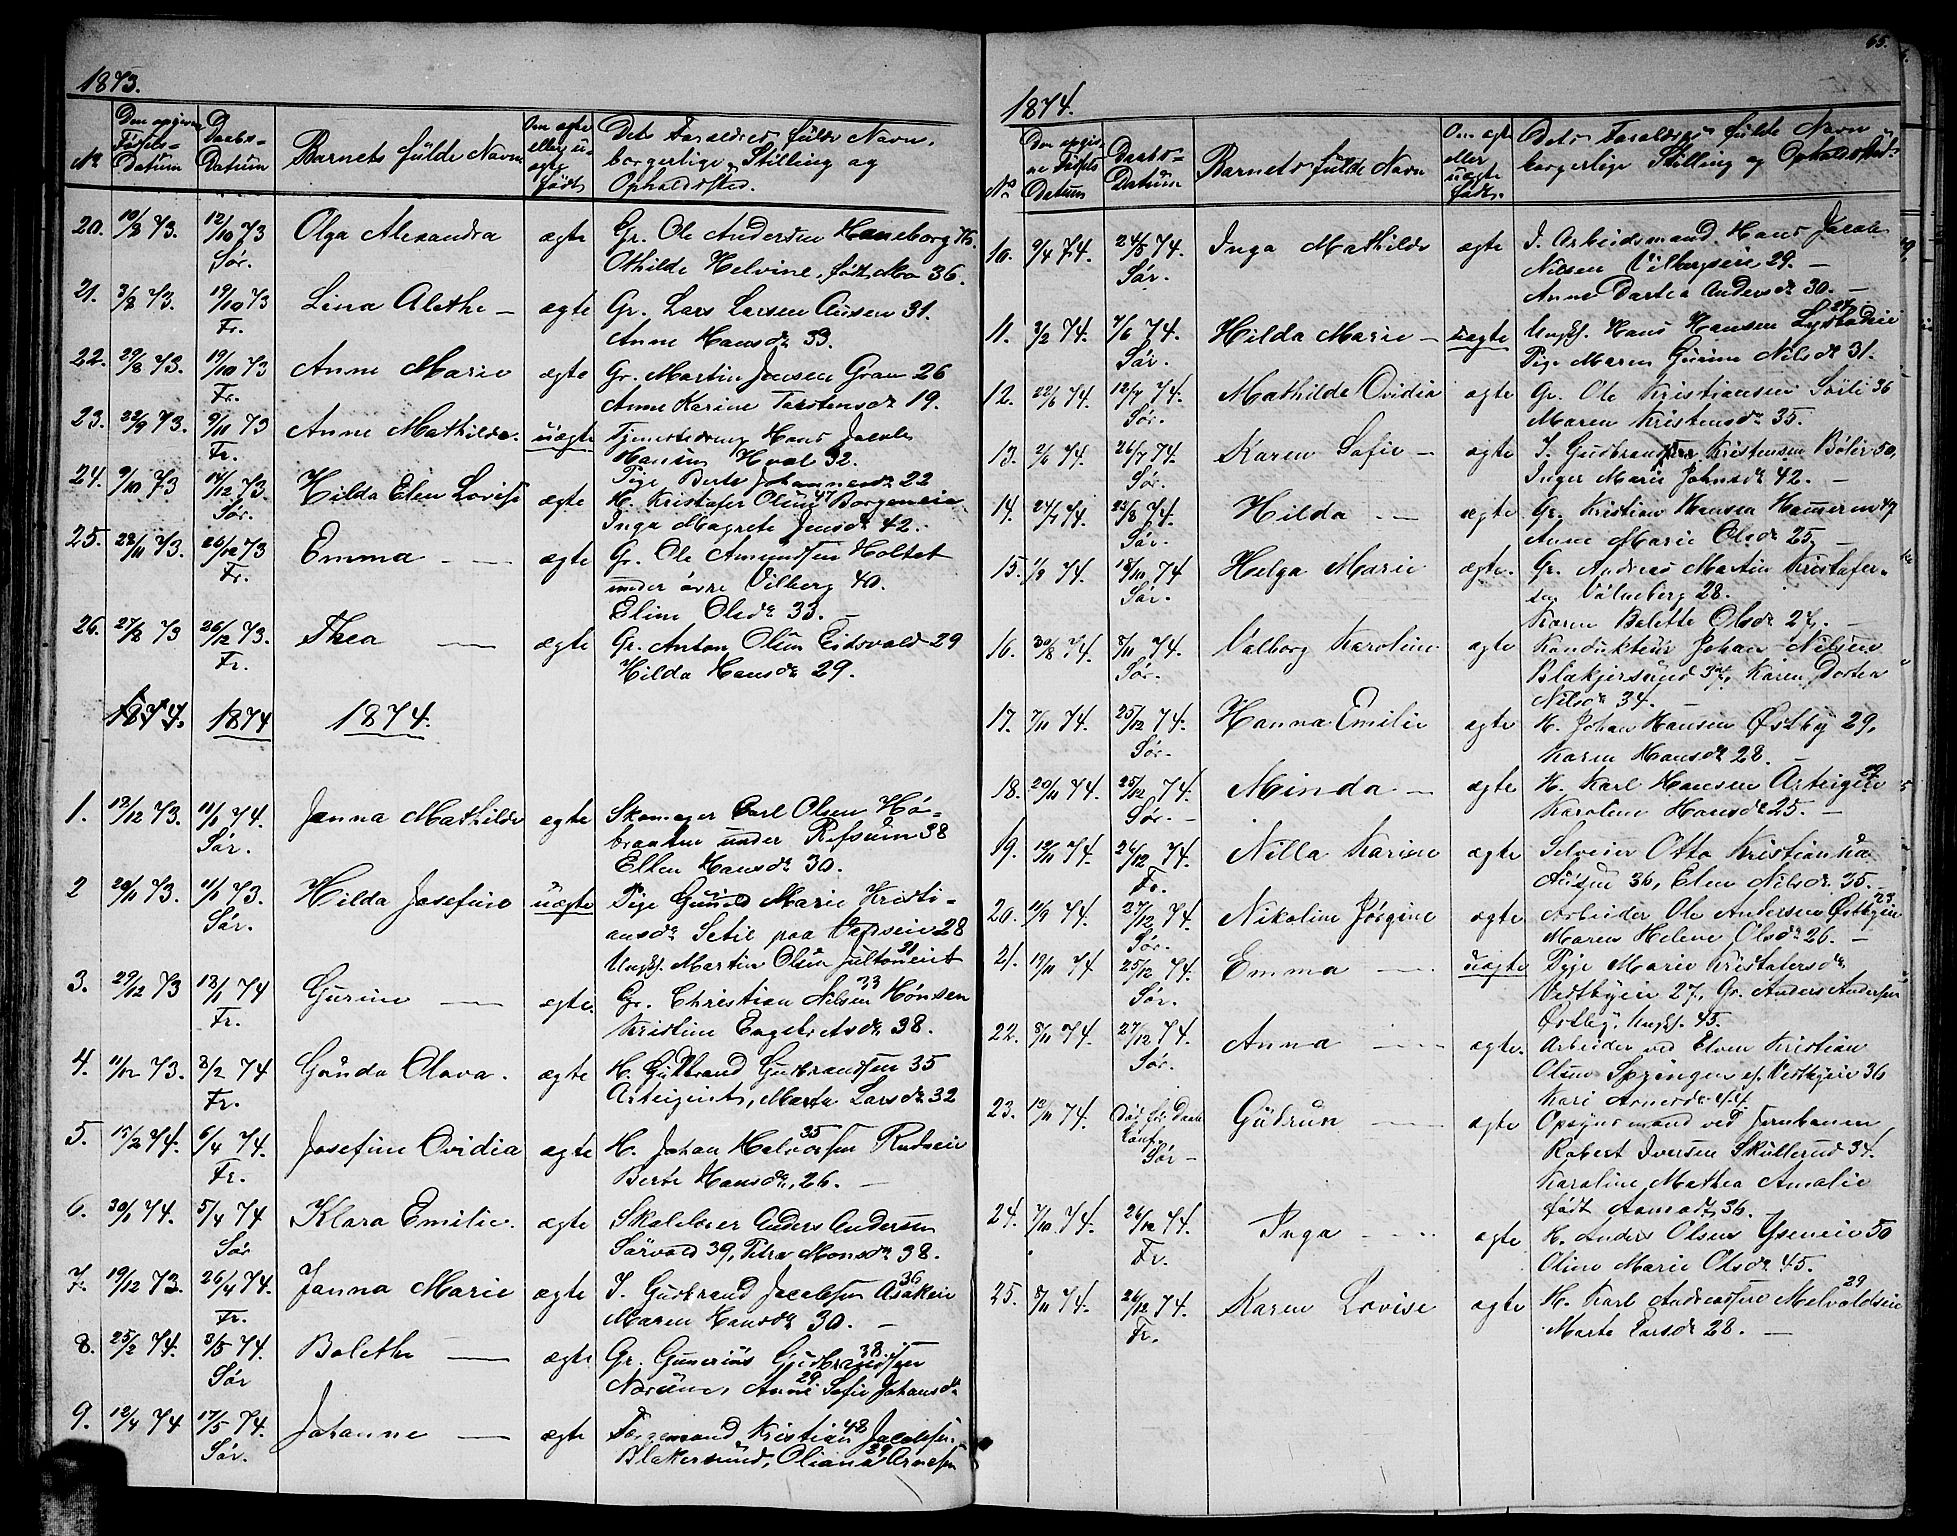 1873.
No
Den opgivne Fødsels-Datum
Daabs-Datum
Barnets fulde Navn
Om ægte eller uægte født
Det Forældres fulde Navn, borgerlige Stilling og Opholdssted.
20. 10/8 73. 12/10 73 Sør. Olga Alexandra ægte Gr. Ole Andersen Haneborg
Othilde Helvine, født Mo 36.
21. 3/8 73. 19/10 73 Fr. Lina Alethe — ægte Gr. Lars Larsen 31.
Anne Hansdr 33.
22. 29/8 73. 19/10 73 Fr. Anne Marie ægte Gr. Martin Jensen Gran 26
Anne Karine Torstensdr 19.
23. 22/9 73. 9/11 73 Fr. Anne Mathilde. uægte Tjenestedreng Hans Jacob
Hansen Hval 32.
Pige Berte Johannesdr 22
24. 9/10 73 14/12 73. Sør. Hilda Elen Lovise ægte H. Kristofer Olsen 47 Borgeneie
Inga Magrete Jensdr 42.
25. 28/11 73. 26/12 73 Fr. Emma — ægte Gr. Ole Amundsen Holtet
under øvre Vilberg 40.
Eline Olsdr 33. —
26. 27/8 73 26/12 73. Fr. Thea — ægte Gr. Anton Olsen Eidsvold 29
Hilda Hansdr 29.
1874 1874.
1. 19/12 73. 11/1 74. Sør. Janna Mathilde ægte Skomager Carl Olsen Hø-
braaten under Refsum 38
Ellen Hansdr 30.
2 20/11 73. 11/1 73. Sør. Hilda Josefine uægte Pige Gunild Marie Kristi-
ansdr Setil paa 28
Ungkf. Martin Olsen 21
3. 29/12 73 13/1 74 Fr. Gurine — ægte. Gr. Christian Nilsen 33 Hønsen
Kristine Engebretsdr 38.
4. 11/12 73. 3/2 74 Fr. Gunda Olava. ægte H. Gulbrand Gudbrandsen 35
Marte Larsdr 32
5. 15/2 74. 6/4 74. Fr. Josefine Ovidia ægte H. Johan Halvorsen 35 Rudseie
Berte Hansdr, 26. —
6. 30/1 74. 5/4 74 Sør Klara Emilie. ægte Skolelærer Anders Andersen
Sørvald 39, Petra Monsdr 38.
7. 19/12 73. 26/4 74. Fr. Janna Marie ægte I. Gudbrand Jacobsen 36 Asakeie
Maren Hansdr 30. —
8. 25/2 74. 3/5 74. Sør Bolethe — ægte Gr. Gunerius Gudbrandsen 38.
Anne 29 Sofie Johansdr
9. 12/4 74 17/5 74. Sør. Johanne — ægte Færgemand Kristian 48 Jacobsen
Blakersund, Oliana 29 Arnesen
65.
1874.
No
Den opgivne Fødsels Datum
Daabs-Datum
Barnets fulde Navn
Om ægte eller uægte født.
Dets Forældres fulde Navn borgerlige Stilling og Opholdssted
10. 9/4 74. 24/5 74. Sør. Inga Mathilde ægte I. Arbeidsmand Hans Jacob
Nilsen Vilbergseie 29. —
Anne Dortea Andersdr 30. —
11. 3/2 74. 7/6 74. Sør. Hilda Marie — uægte Ungkf. Hans Hansen
Pige Maren Gurine Nilsdr 31.
12. 22/6 74. 12/7 74. Sør. Mathilde Ovidia ægte Gr. Ole Kristiansen Sørli 36
Maren Kristensdr 35.
13. 2/6 74. 26/7 74. Sør. Karen Sofie — ægte I. Gudbrand Kristensen Bøler 50,
Inger Marie Johnsdr 42. —
14. 24/7 74. 23/8 74. Sør. Hilda — ægte Gr. Kristian Hansen
Anne Marie Olsdr 25, —
15. 1/9 74. 18/10 74 Sør. Helga Marie ægte. Gr. Andreas Martin Kristofer-
sen 28.
Karen Bolette Olsdr 27, —
16. 30/8 74. 8/11 74. Sør. Valborg Karoline ægte Konduktør Johan Nilsen
Blakjersund Karen Dortea
Nilsdr 34. —
17. 7/11 74. 25/12 74. Sør. Hanna Emilie ægte H. Johan Hansen Østby 29,
Karen Hansdr 28.
18. 20/11 74. 25/12 74. Sør. — Minda — ægte H. Karl Hansen
Karoline Hansdr 25. —
19. 12/11 74. 26/12 74. Fr. Nilla Karine ægte Selveier Otto Kristian
36, Elen Nilsdr 35. —
20. 12/9 74. 27/12 74. Sør Nikoline Jørgine ægte Arbeider Ole Andersen Østbyeie 23.
Maren Helene Olsdr 26. —
21. 19/11 74 25/12 74. Sør Emma — uægte Pige Marie Kristofersdr
Vestbyeie 27, Gr. Anders Andersen
Østby, Ungkf. 45.
22. 8/11 74. 27/12 74. Sør. Anna — ægte. Arbeider ved Elven Kristian
Olsen Springen Vestbyeie 36
Kari Arnesdr 44.
23. 13/11 74. Sør — Gudrun — ægte Opsynsmand ved Jernbanen
Robert Iversen Skullerud 34.
Karoline Mathea Amalie
født 36.
24. 7/10 74. 26/12 74. Fr. Inga — ægte H. Anders Olsen 50
Oline Marie Olsdr 45.
25. 8/11 74. 26/12 74. Fr. Karen Lovise ægte H. Karl Andreassen Melvoldseie 29
Marte Larsdr 28. —